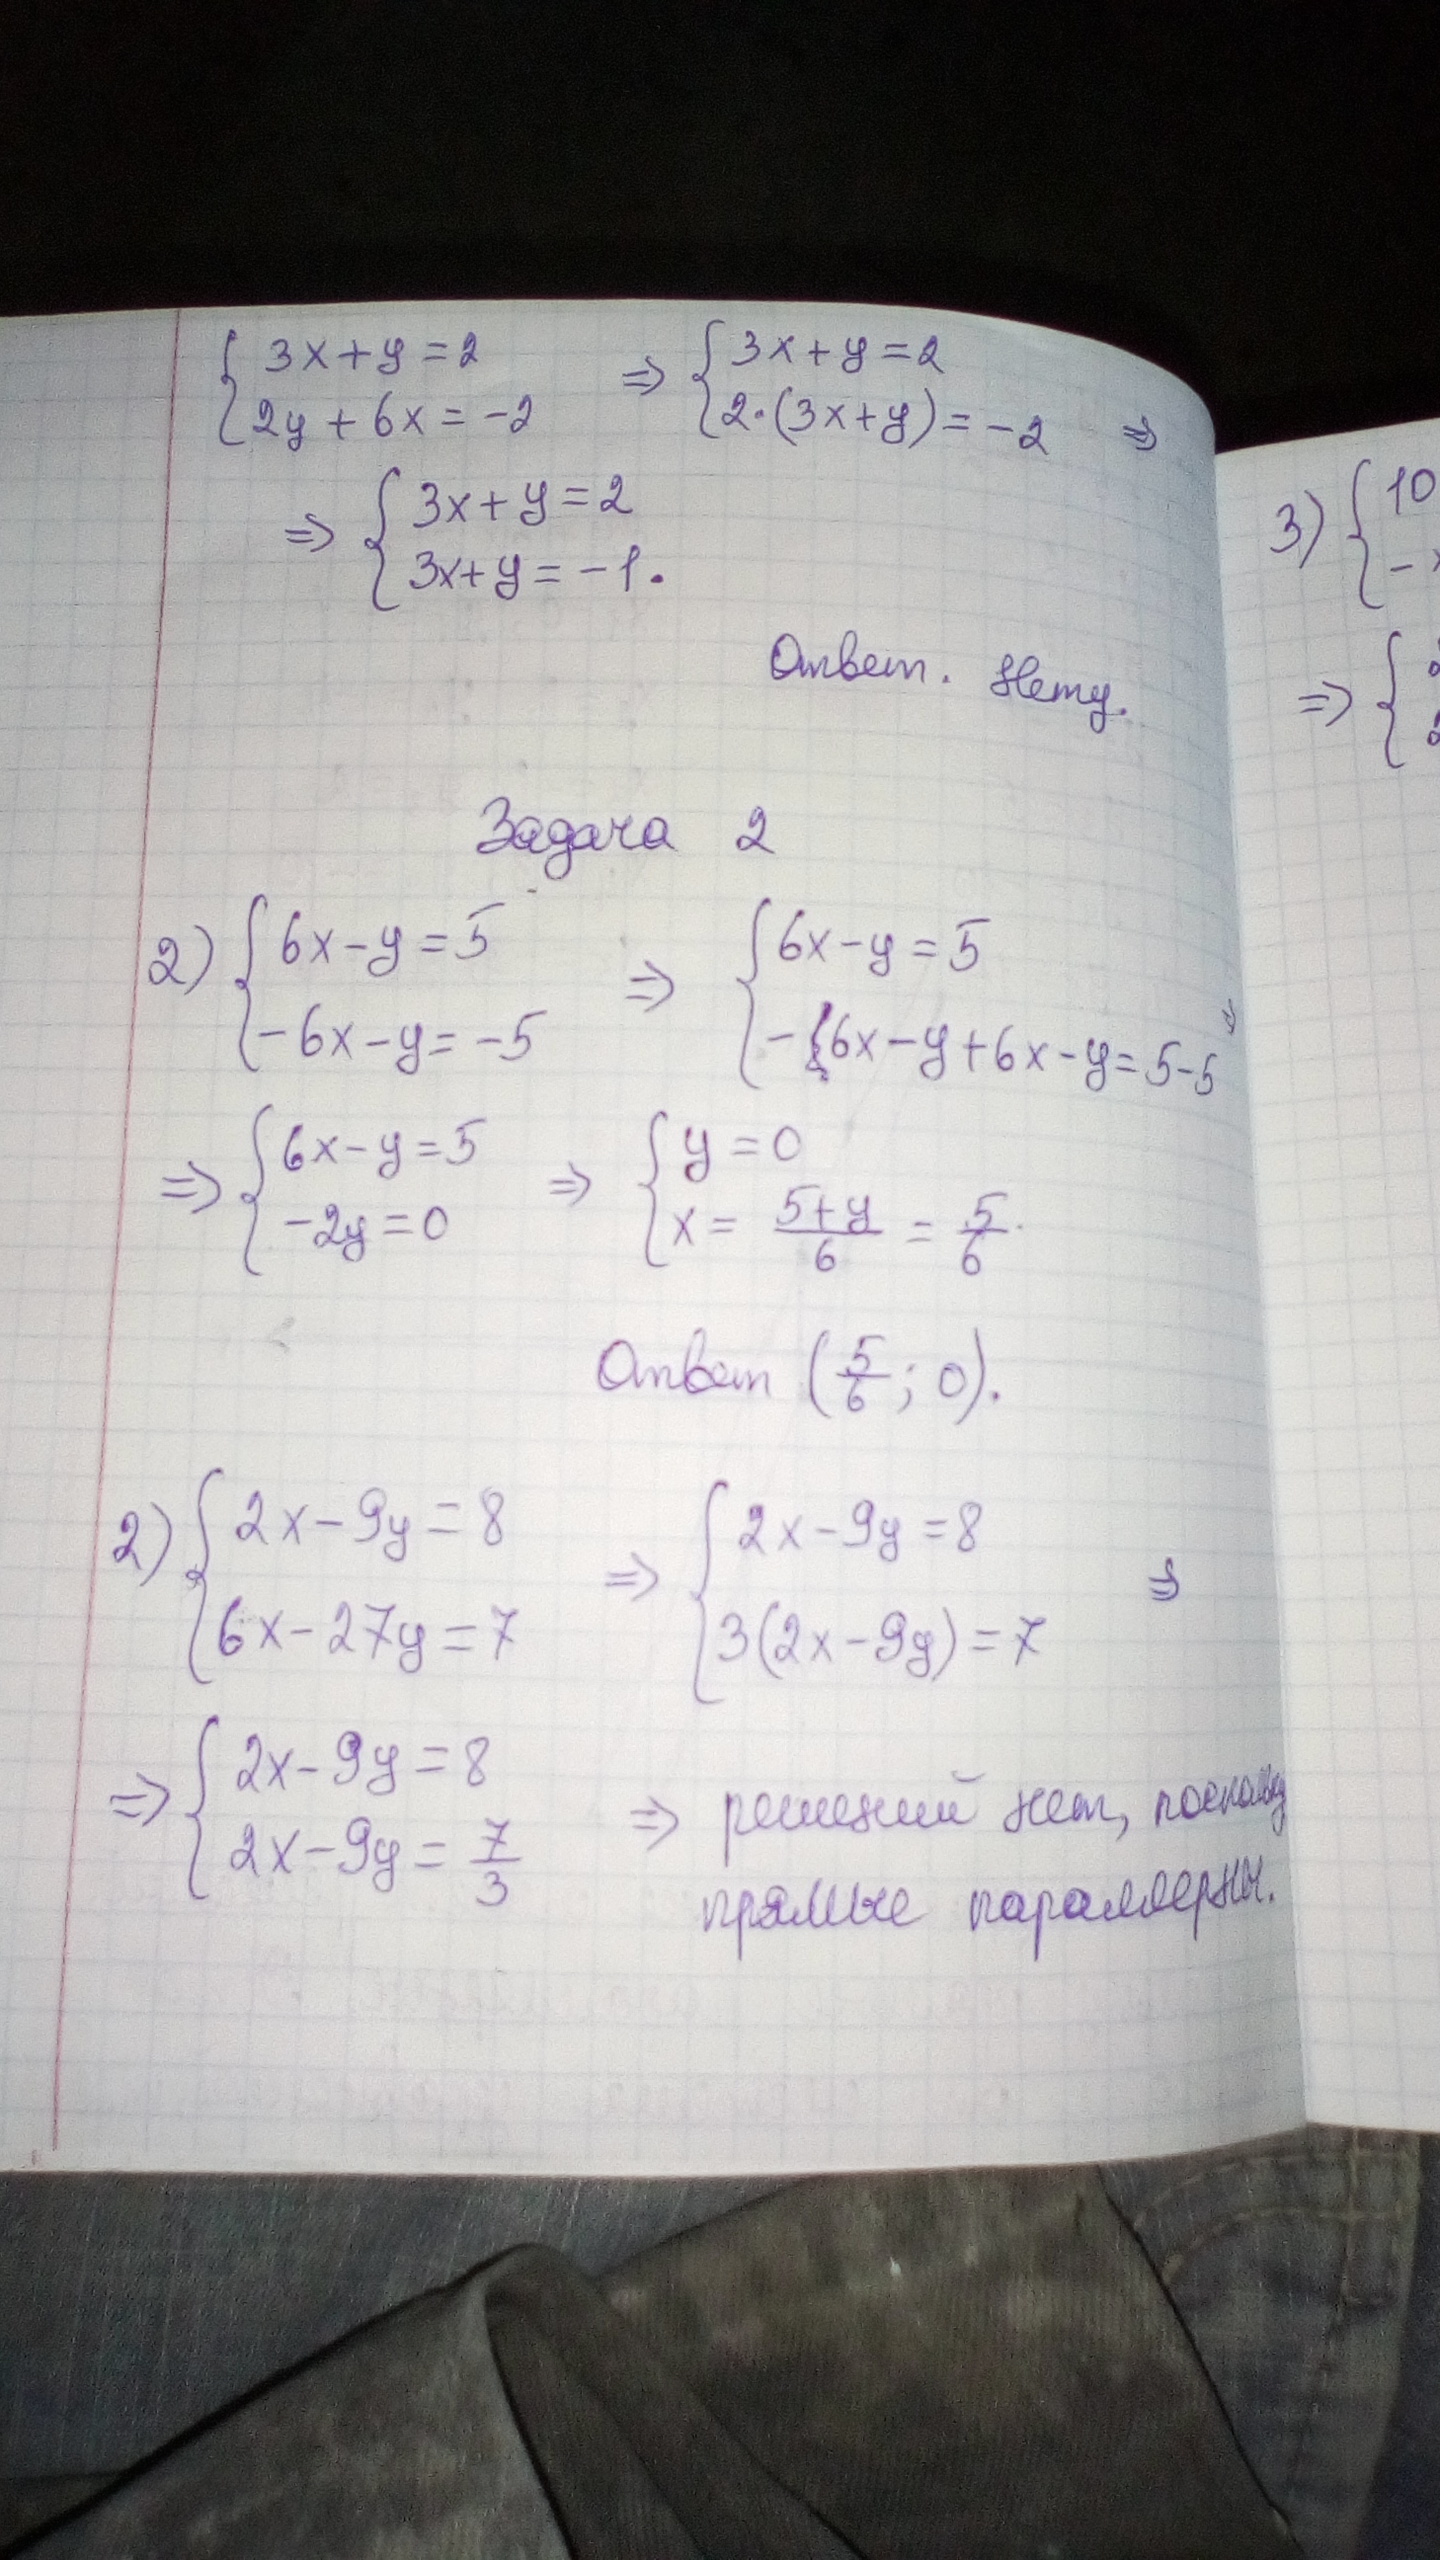 { 3x+y=2 ⇒ { 3x+y=2
2y+6x=-2 2·(3x+y)=-2 ⇒
⇒ { 3x+y=2
3x+y=-1.
Ответ. Нету.
Задача 2
2) { 6x-y=5 ⇒ { 6x-y=5
-6x-y=-5 -6x-y+6x-y=5-5 ⇒
⇒ { 6x-y=5 ⇒ { y=0
-2y=0 x= (5+y)/6 = 5/6.
Ответ (5/6; 0).
2) { 2x-9y=8 ⇒ { 2x-9y=8
6x-27y=7 3(2x-9y)=7 ⇒
⇒ { 2x-9y=8 ⇒ решений нет, поскольку
2x-9y= 7/3 прямые параллерны.
3) { 10
-
⇒ {